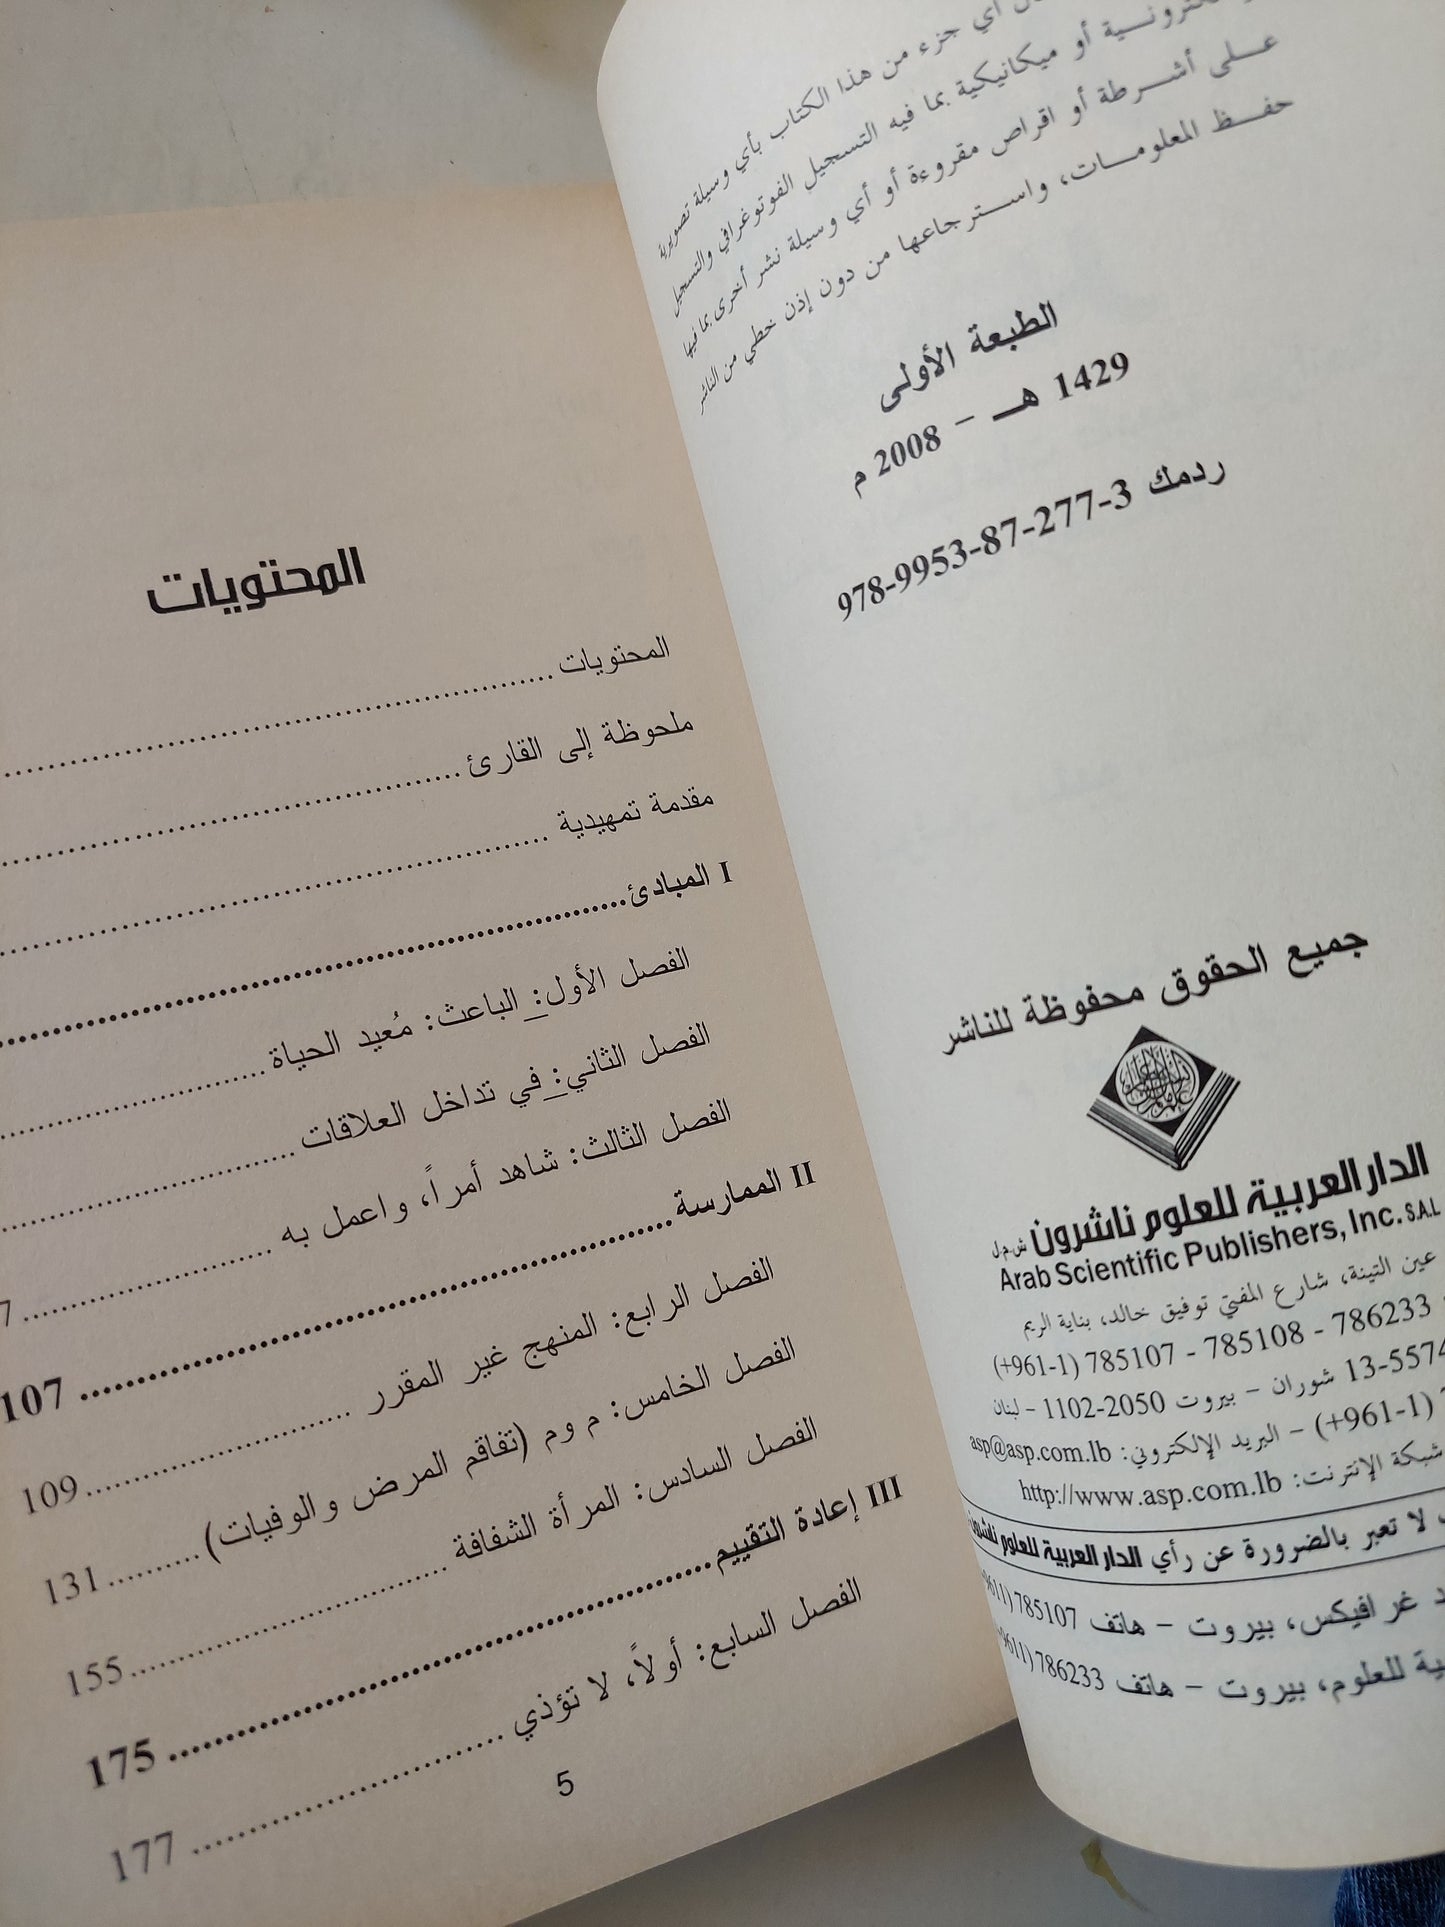 أي جزء من هذا الكتاب بأي وسيلة تصويرية
أو ميكانيكية بما فيه التسجيل الفوتوغرافي والتسجيل
على أشرطة أو اقراص مقروءة أو أي وسيلة نشر أخرى بما فيها
حفظ المعلومات، واسترجاعها من دون إذن خطي من الناشر
الطبعة الأولى
1429 هـ - 2008 م
ردمك 978-9953-87-277-3
جميع الحقوق محفوظة للناشر
الدار العربية للعلوم ناشرون ش.م.ل
Arab Scientific Publishers, Inc. S.A.L
عين التينة، شارع المفتي توفيق خالد، بناية الريم
(+961-1) 785107 - 785108 - 786233
13-5574 شوران - بيروت 2050-1102 - لبنان
(+961-1) - البريد الإلكتروني: asp@asp.com.lb
شبكة الإنترنت: http://www.asp.com.lb
لا تعبر بالضرورة عن رأي الدار العربية للعلوم ناشرون
غرافيكس، بيروت - هاتف 785107 (9611
للعلوم، بيروت - هاتف 786233 (9611
المحتويات
المحتويات
ملحوظة إلى القارئ
مقدمة تمهيدية
I المبادئ
الفصل الأول: الباعث: مُعيد الحياة
الفصل الثاني: في تداخل العلاقات
الفصل الثالث: شاهد أمراً، واعمل به 7
II الممارسة 107
الفصل الرابع: المنهج غير المقرر 109
الفصل الخامس: م وم (تفاقم المرض والوفيات) 131
الفصل السادس: المرأة الشفافة 155
III إعادة التقييم 175
الفصل السابع: أولاً، لا تؤذي 177
5